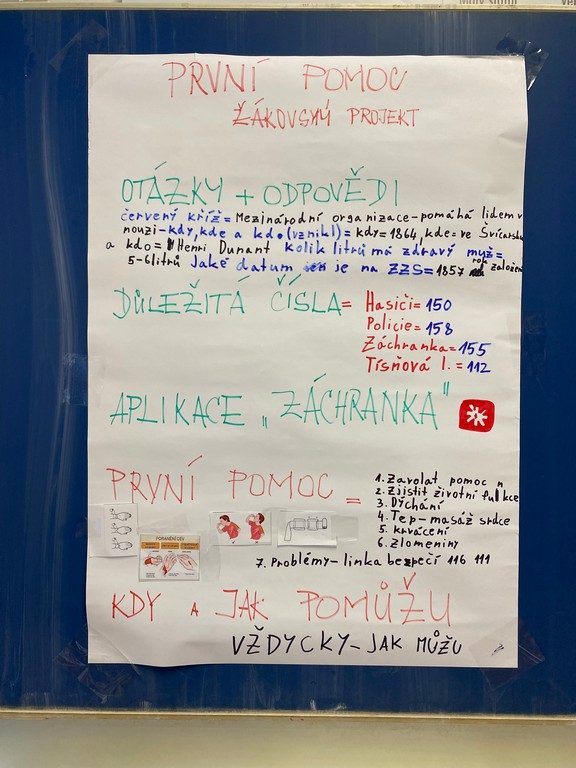 PRVNÍ POMOC
ŽÁKOVSKÝ PROJEKT
OTÁZKY + ODPOVĚDI
červený kříž = Mezinárodní organizace - pomáhá lidem v
nouzi - kdy, kde a kdo (vznikl) = kdy = 1864, kde = ve Švýcarsku
a kdo = Henri Dunant kolik litrů má zdravý muž =
5-6 litrů Jaké datum je na ZZS = 1857 rok založení
DŮLEŽITÁ ČÍSLA = Hasiči = 150
Policie = 158
Záchranka = 155
Tísňová l. = 112
APLIKACE „ZÁCHRANKA"
PRVNÍ POMOC =
1. Zavolat pomoc
2. Zjistit životní funkce
3. Dýchání
4. Tep - masáž srdce
5. krvácení
6. Zlomeniny
7. Problémy - linka bezpečí 116 111
PORANĚNÍ CÉV
KDY A JAK POMŮŽU
VŽDYCKY - JAK MŮŽU